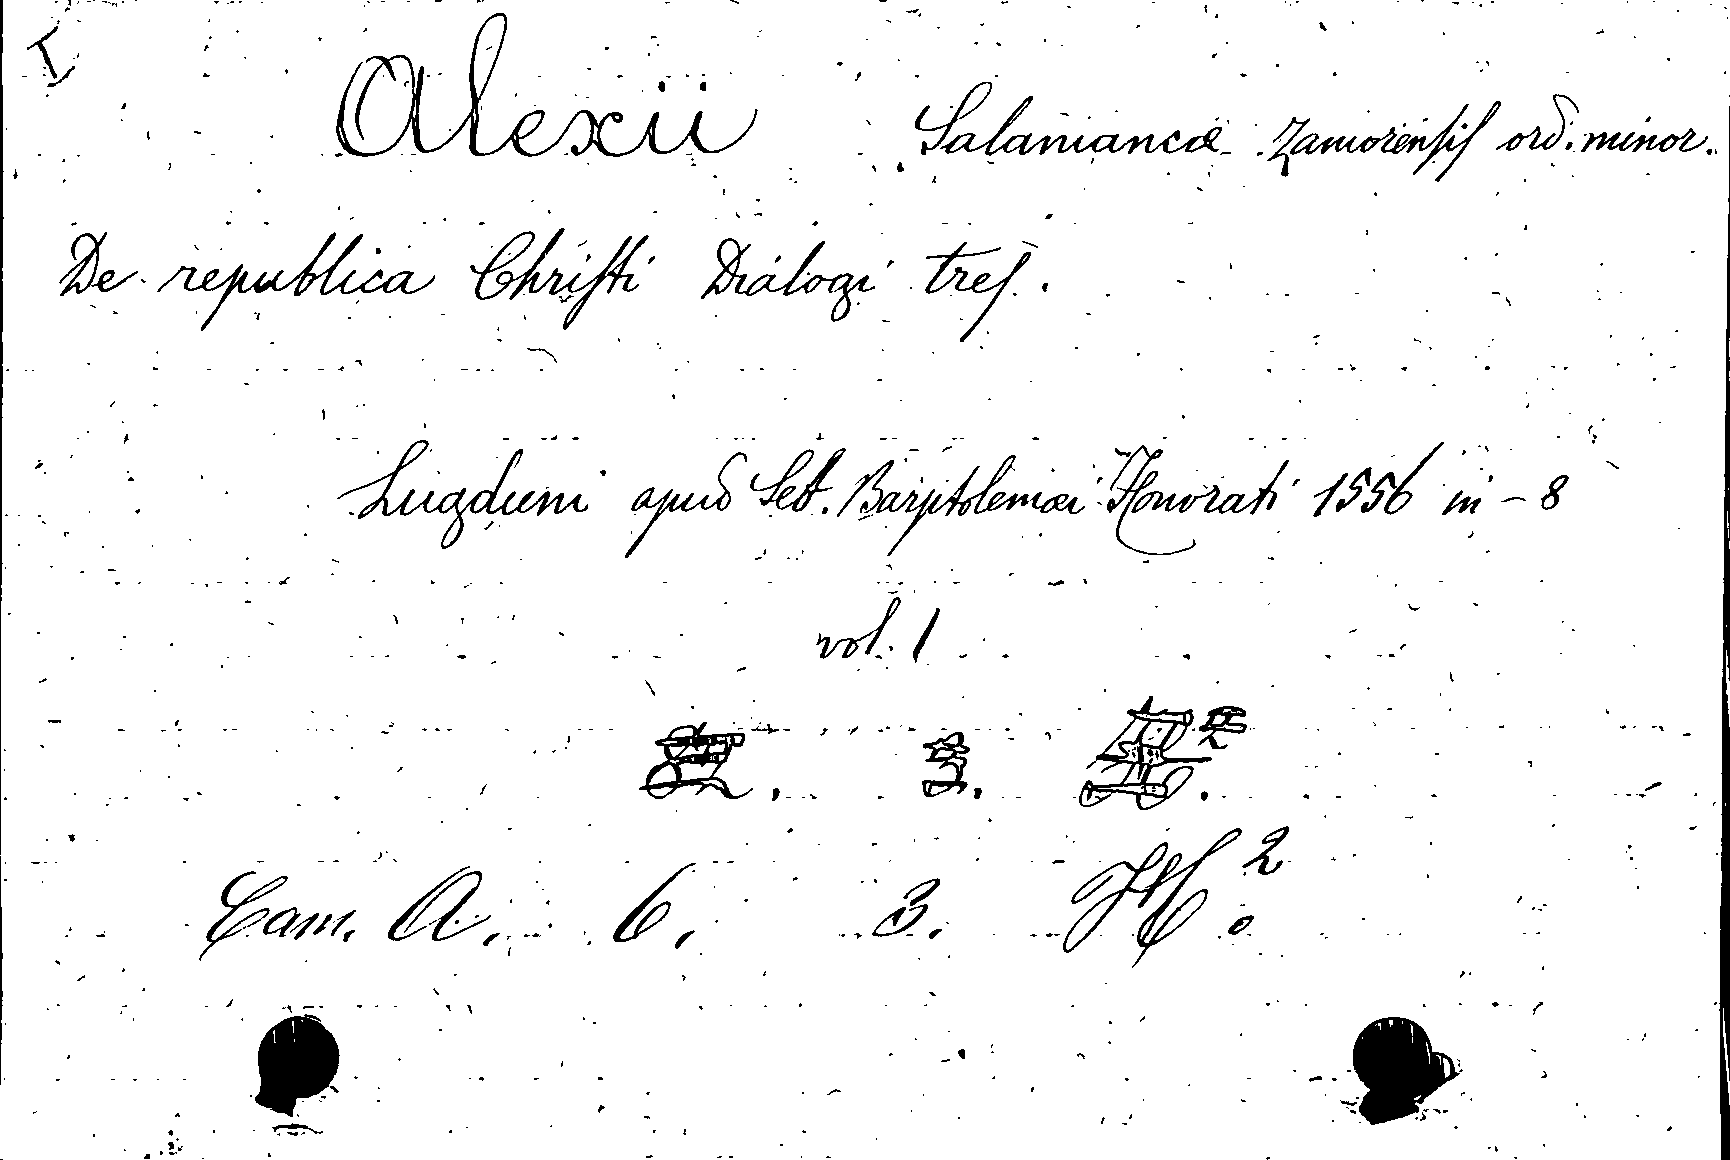 I
Alexii Salamancæ Zamorensis ord. minor.
De republica Christi Dialogi tres.
Lugduni apud Seb. Barptolemæi Honorati 1556 in - 8
vol. 1
3.
Cam. A. 6. 3. H.2